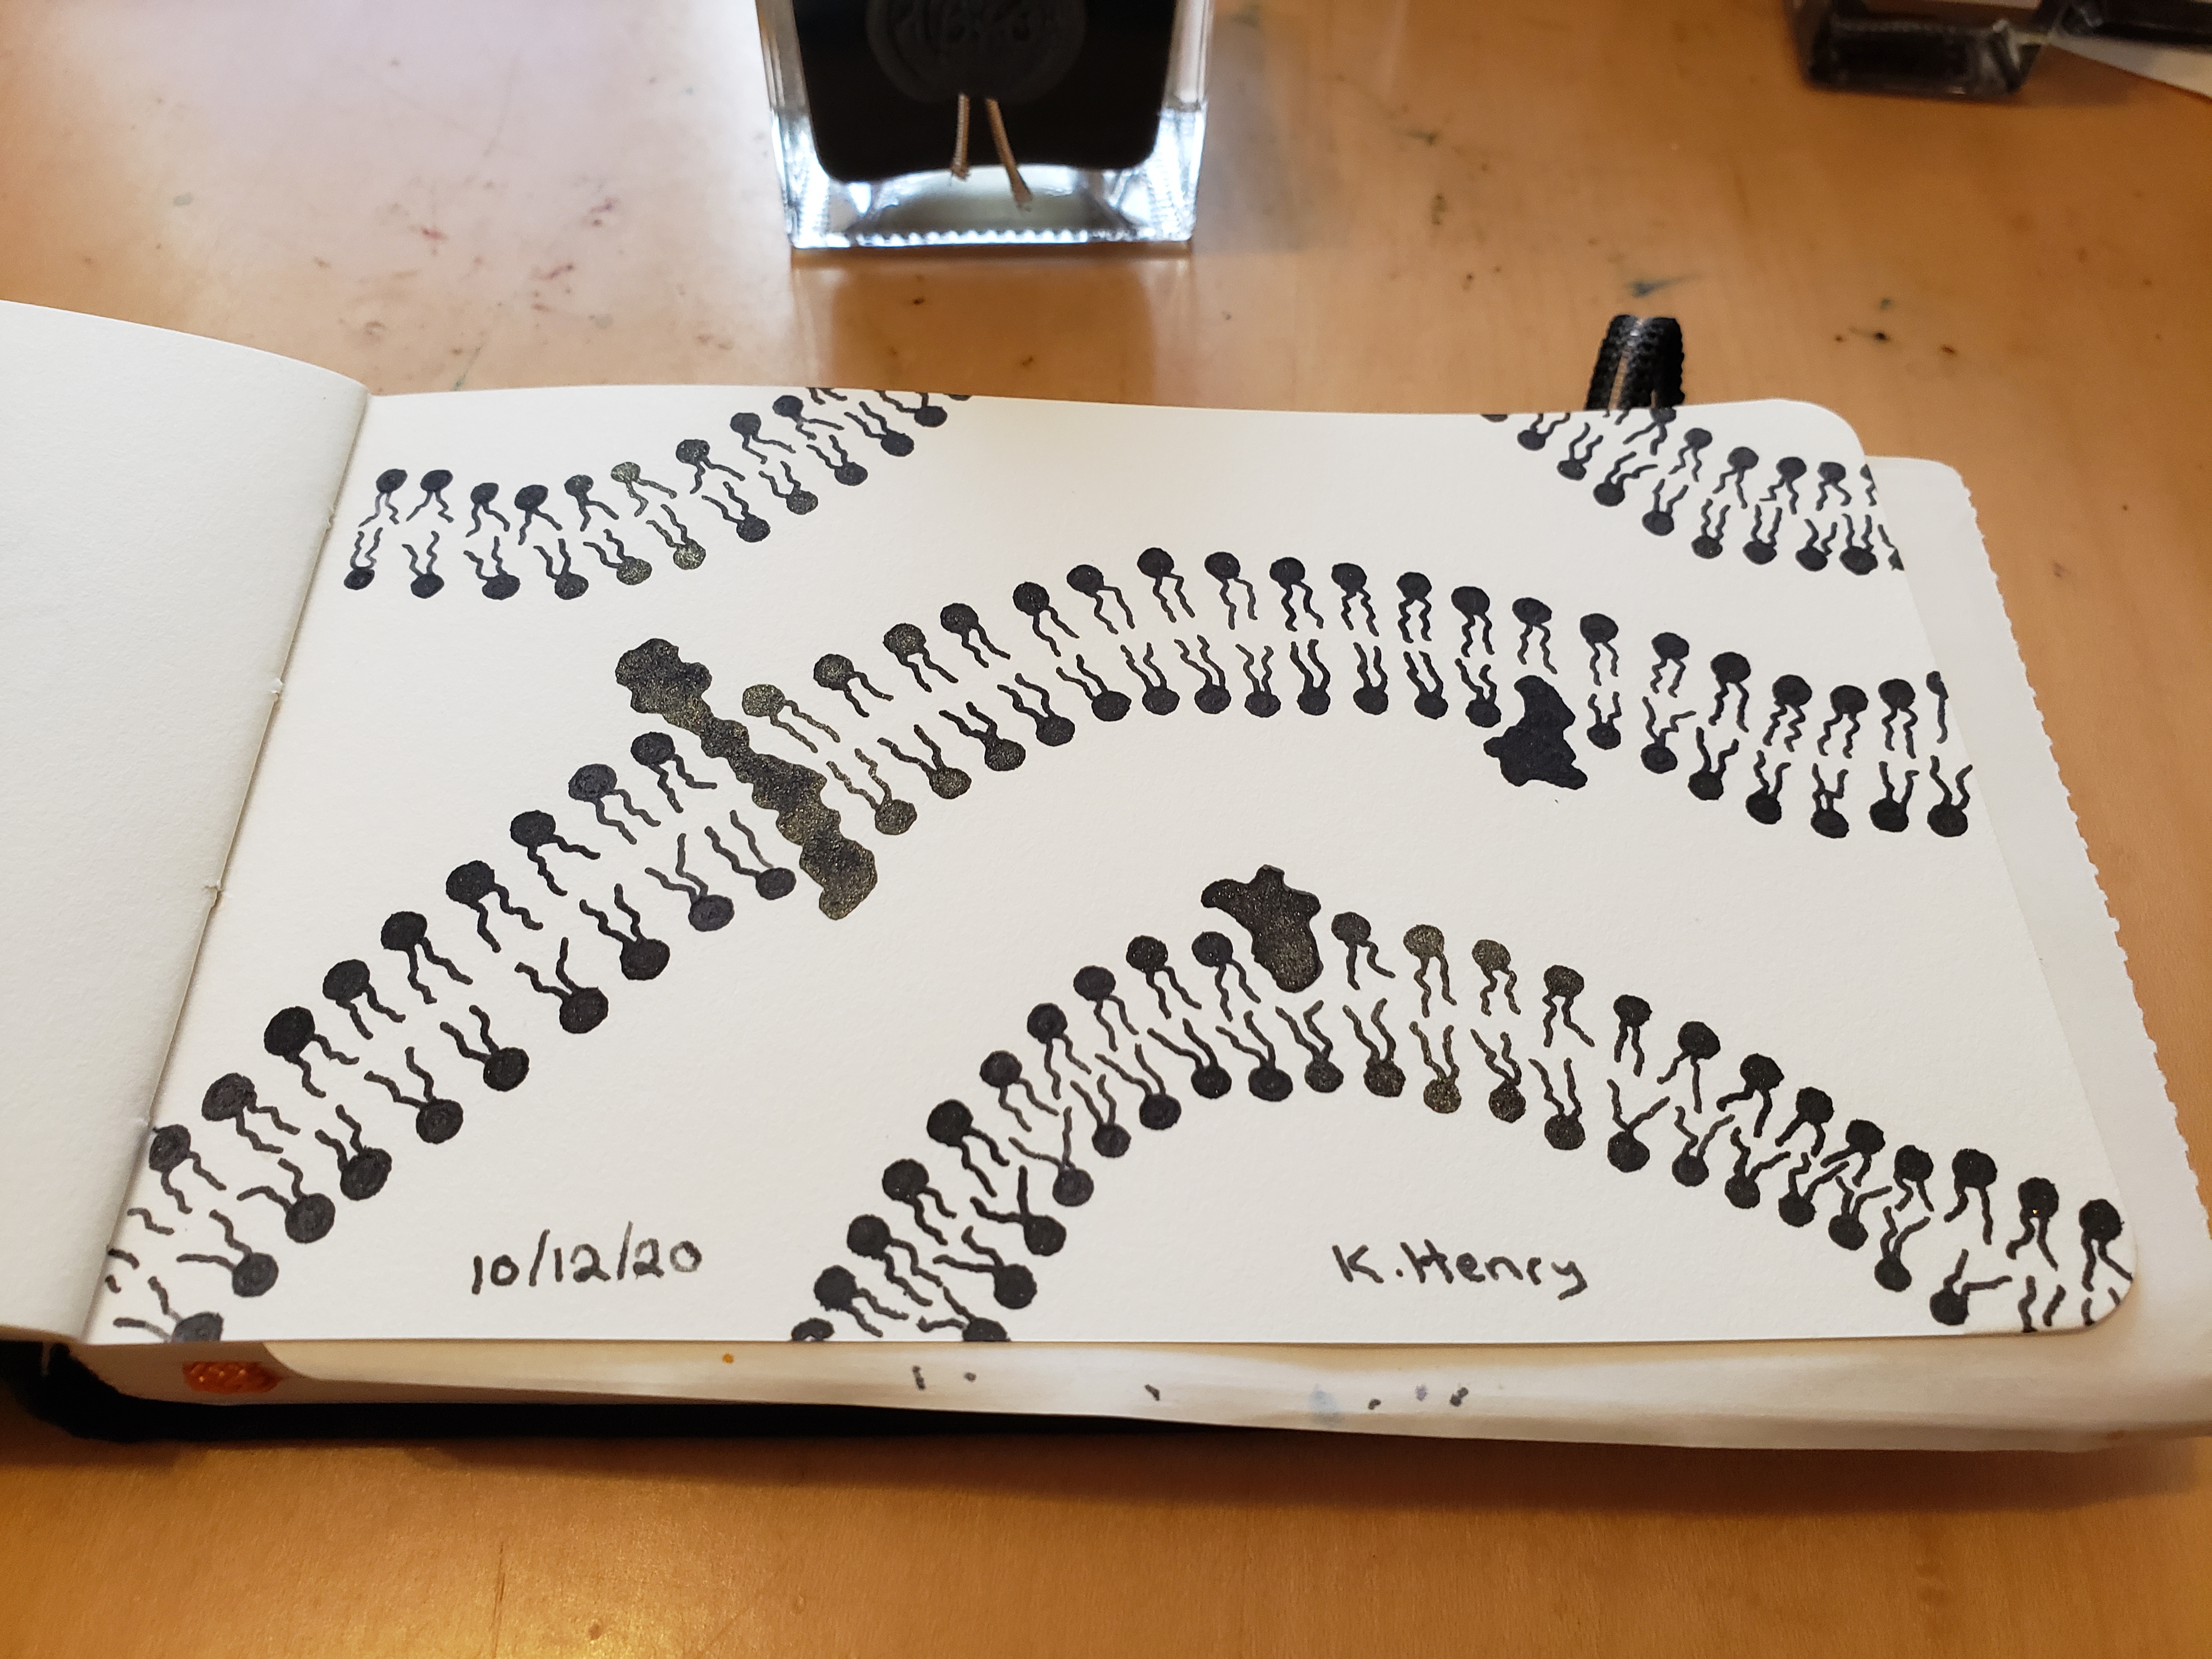 10/12/20
K. Henry